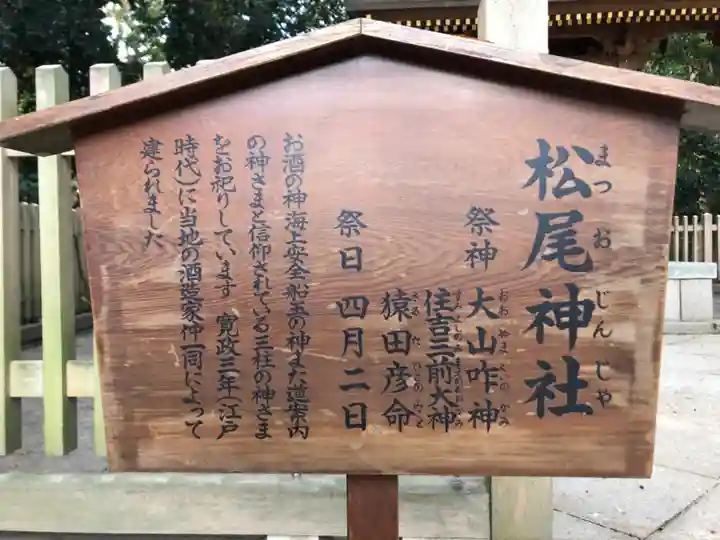 松尾神社
まつおじんじゃ
祭神 大山咋神
おおやまくのかみ
住吉三前大神
猿田彦命
さるたひこのみこと
祭日 四月二日
お酒の神海上安全船玉の神また道案内
の神さまと信仰されている三柱の神さま
をお祀りしています 寛政三年(江戸
時代)に当地の酒造家仲一同によって
建られました